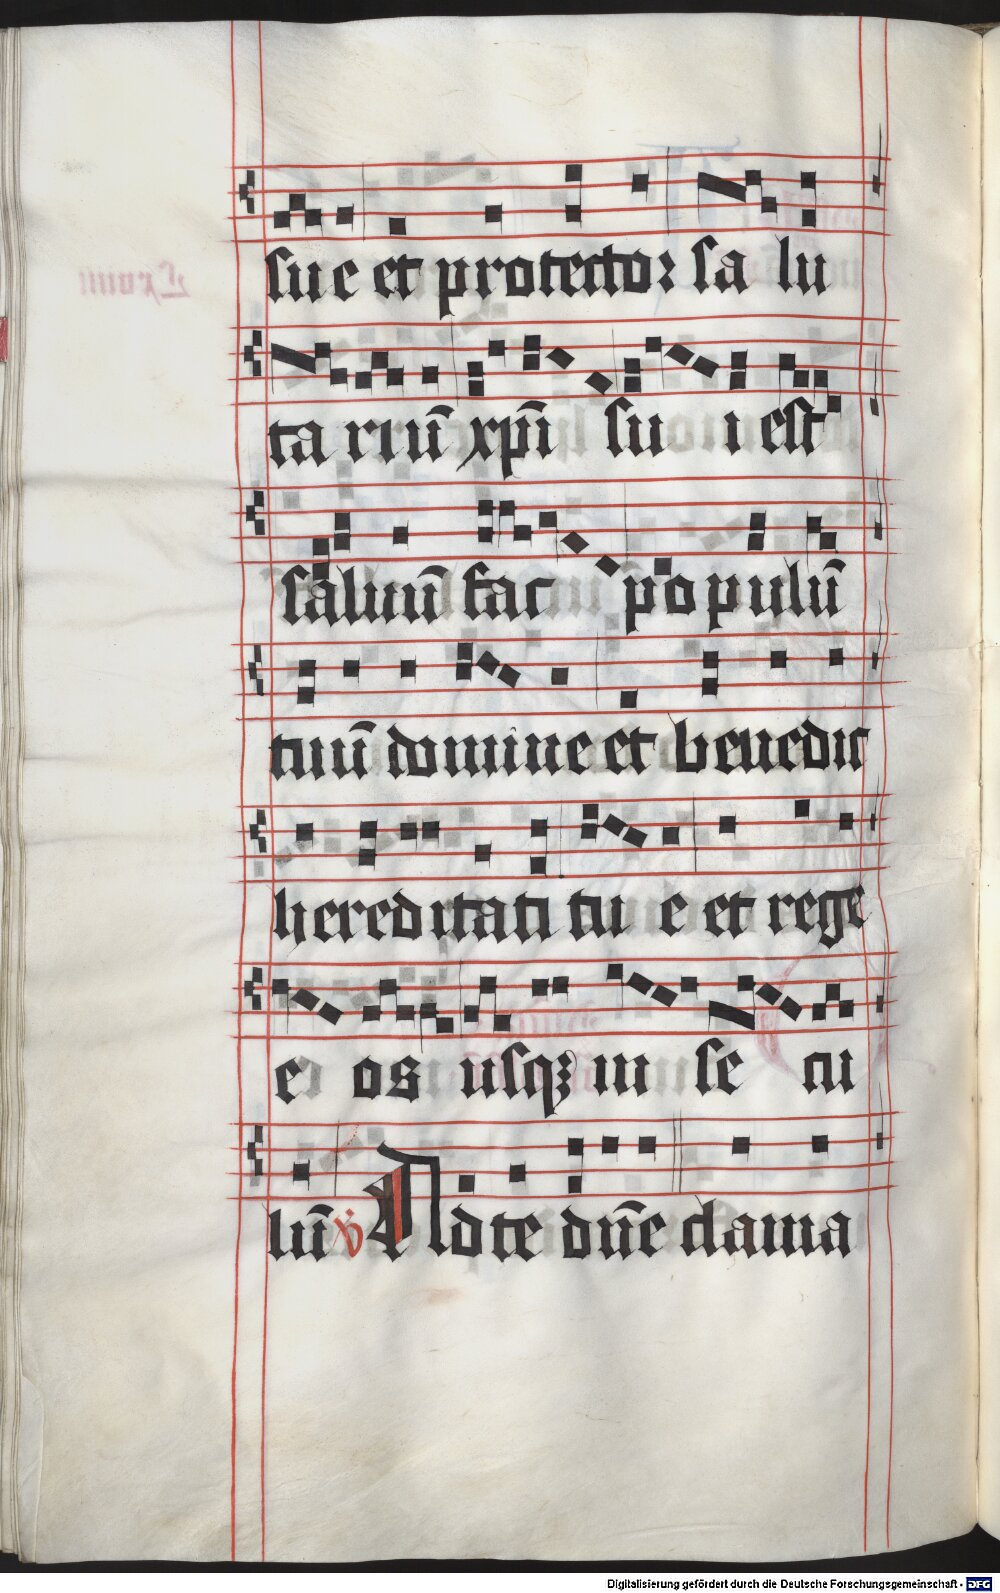 sue et protector sa lu
ta riū xp̄i su i est
saluū fac populū
tuū domine et benedic
hereditati tu e et rege
e os usqꝫ in se cu
lū ℣ Ad te dn̄e clama
Digitalisierung gefördert durch die Deutsche Forschungsgemeinschaft - DFG